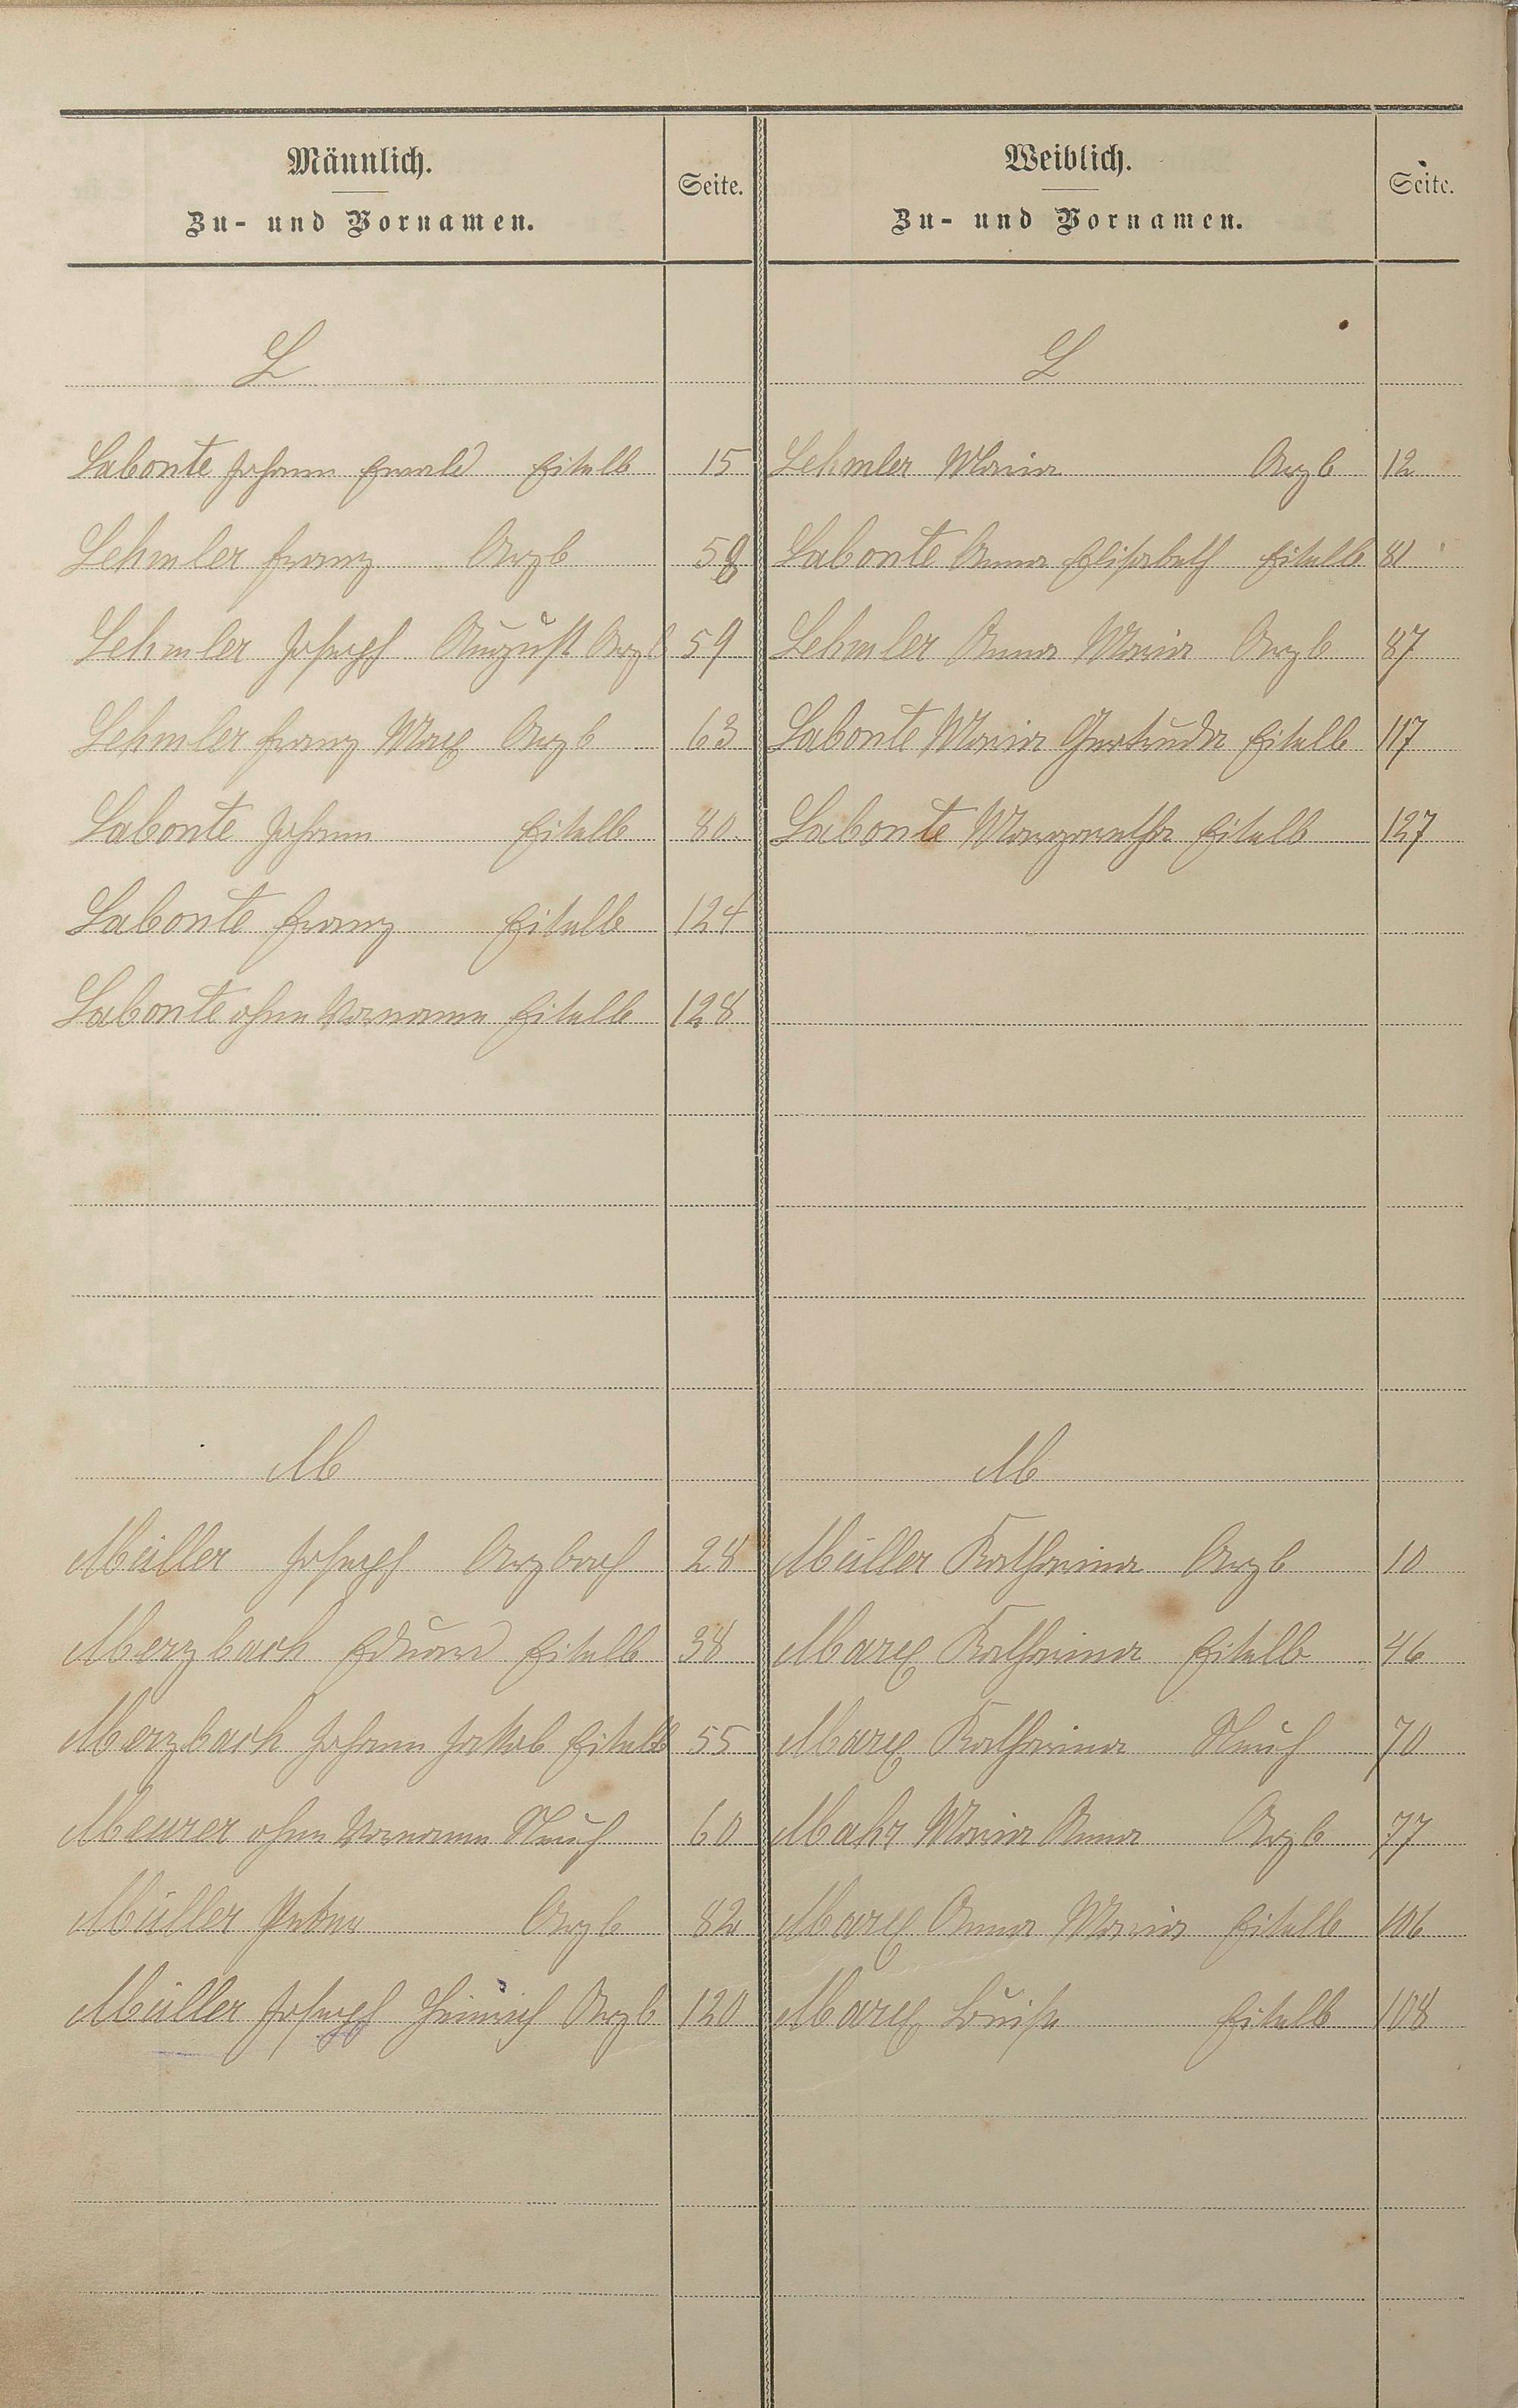 Männlich.
Zu- und Vornamen.
Seite.
Weiblich.
Zu- und Vornamen.
Seite.
L
L
Labonte Johann Ewald Eitelb 15
Lehmler Maria Arzb 12
Lehmler Franz Arzb 58
Labonte Anna Elisabeth Eitelb 81
Lehmler Joseph August Arzb 59
Lehmler Anna Maria Arzb 87
Lehmler Franz Max Arzb 63
Labonte Maria Gertruda Eitelb 117
Labonte Johann Eitelb 80
Labonte Margaretha Eitelb 127
Labonte Franz Eitelb 124
Labonte ohne Vorname Eitelb 128
M
M
Müller Joseph Arzbach 28
Müller Katharina Arzb 10
Merzbach Eduard Eitelb 38
Marx Katharina Eitelb 46
Merzbach Johann Jakob Eitelb 55
Marx Katharina Neuh 70
Meurer ohne Vorname Neuh 60
Mahr Maria Anna Arzb 77
Müller Peter Arzb 82
Marx Anna Maria Eitelb 106
Müller Joseph Heinrich Arzb 120
Marx Louise Eitelb 108